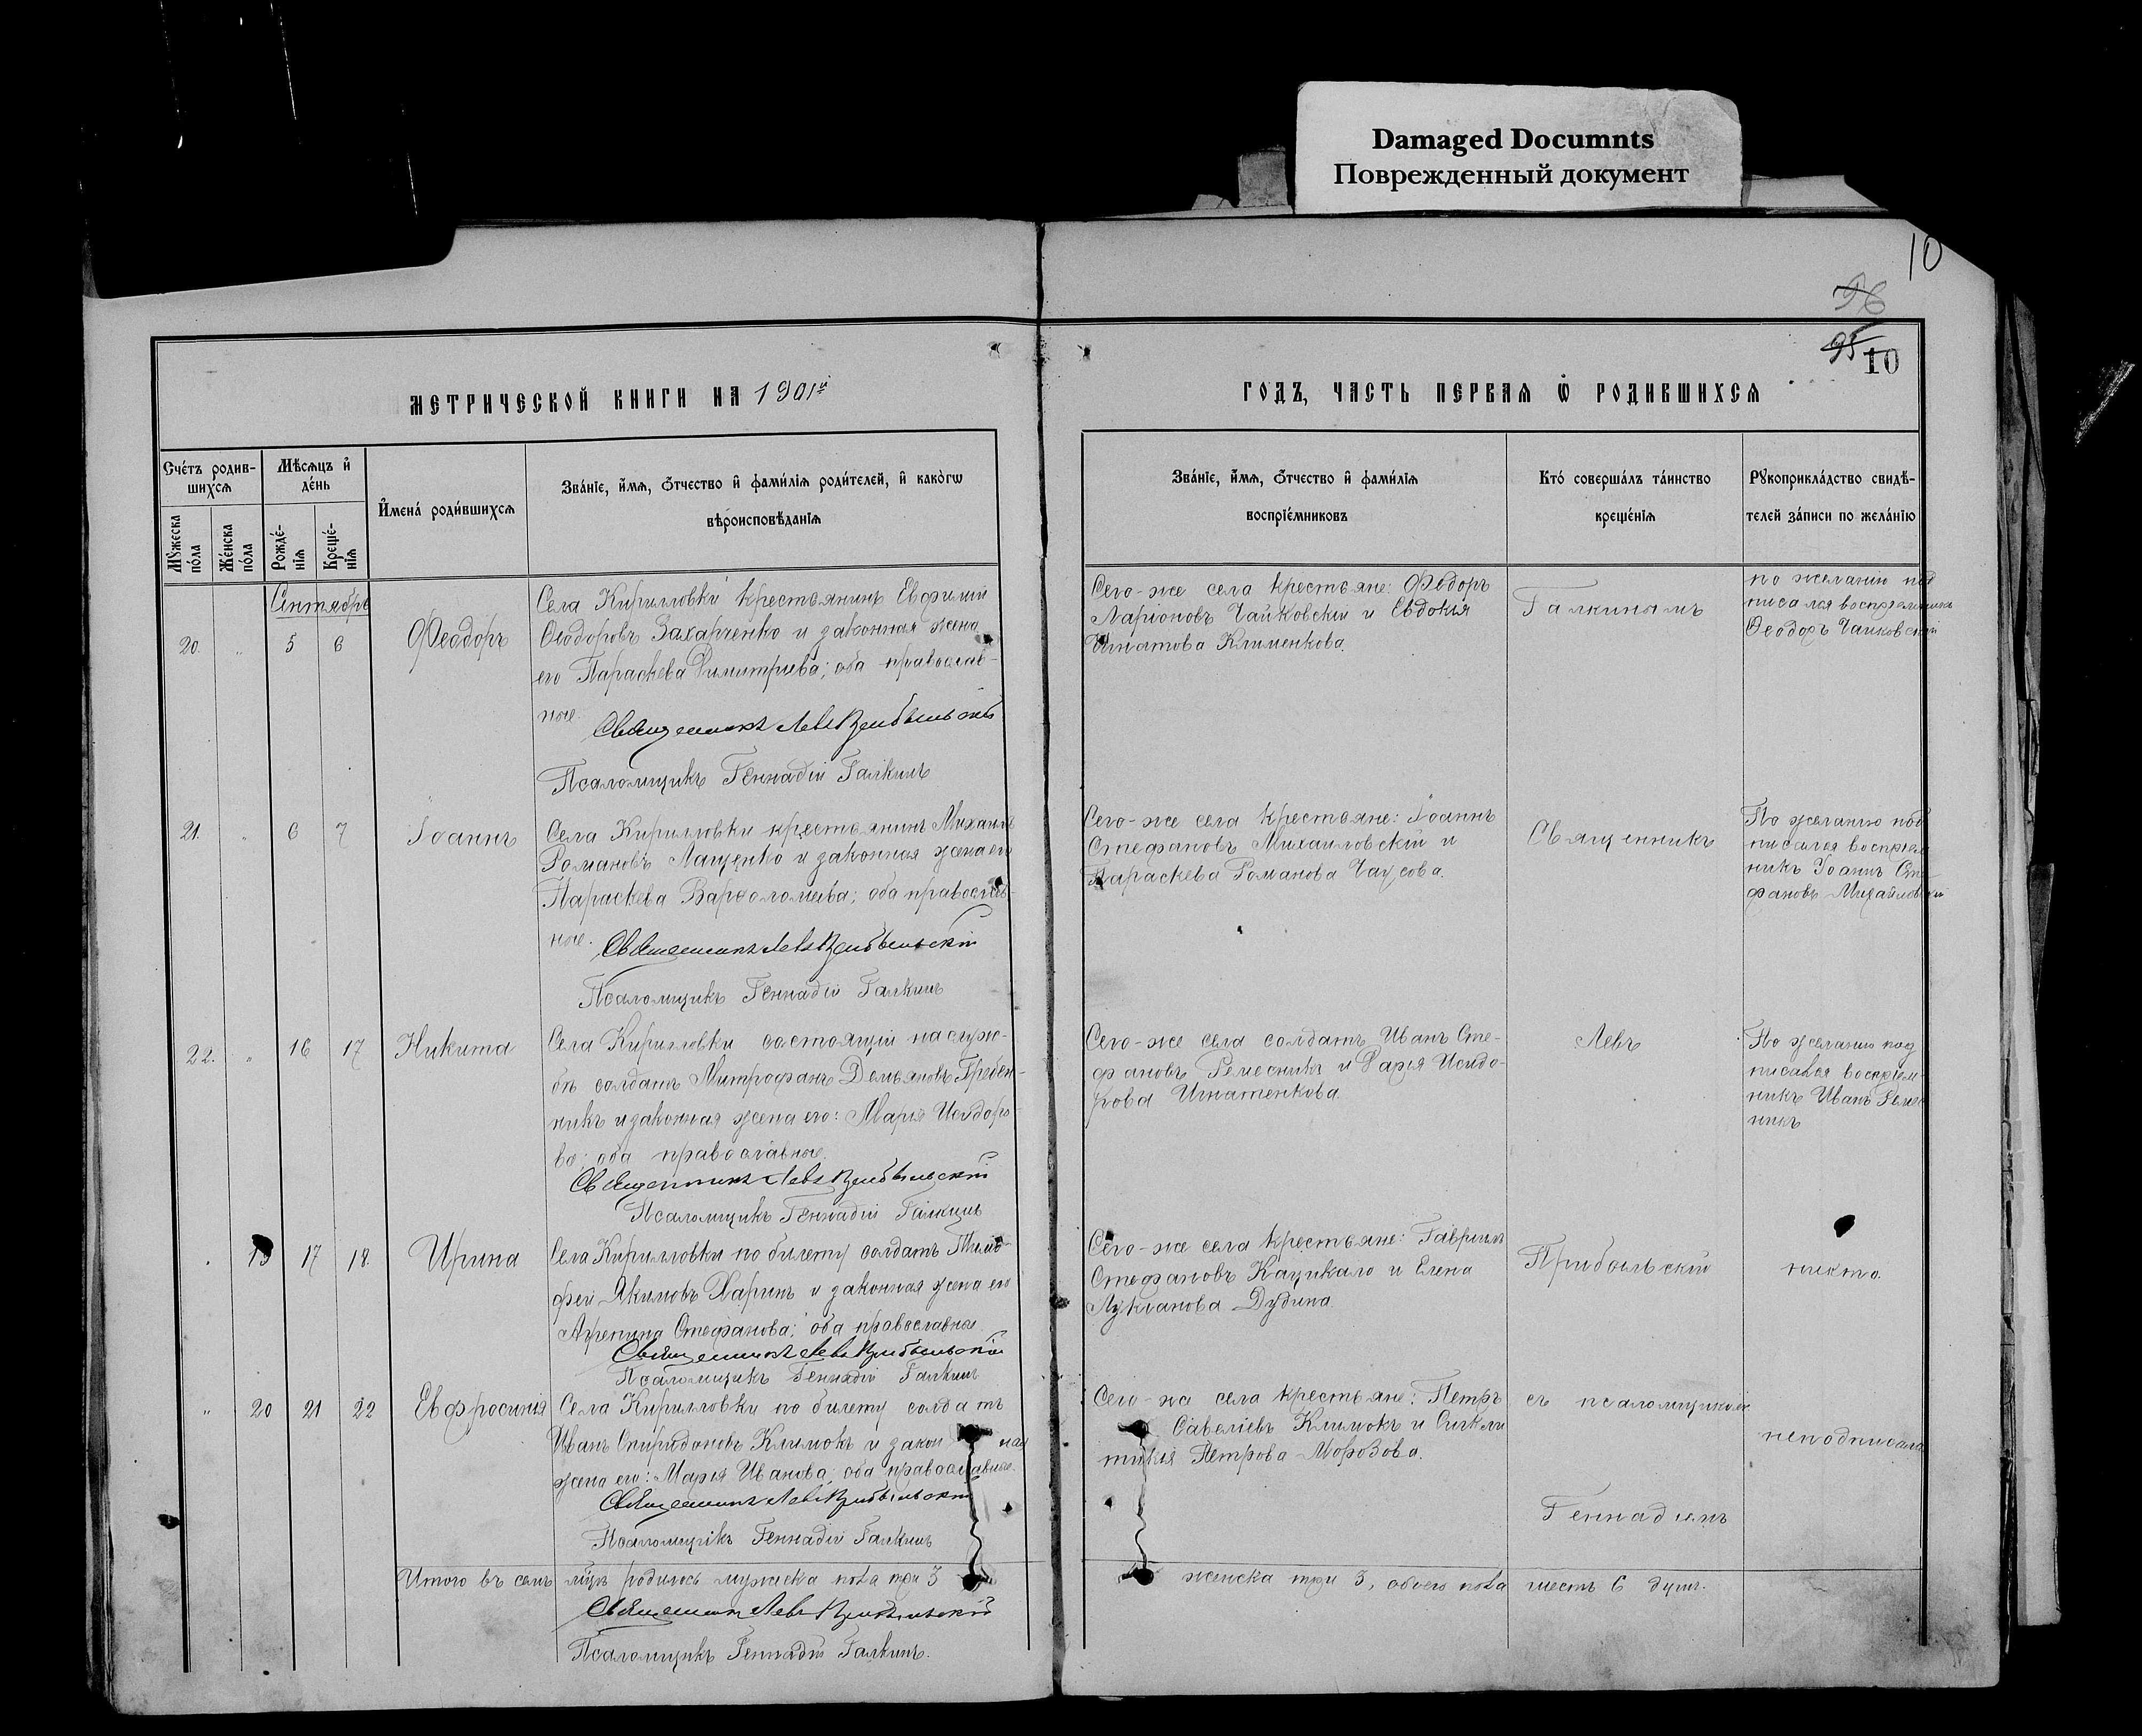 Damaged Documnts
Поврежденный документ
10
96
95
10
МЕТРИЧЕСКОЙ КНИГИ НА 1901й
ГОДЪ, ЧАСТЬ ПЕРВАЯ Ѡ РОДИВШИХСЯ
Счетъ родив-
шихся
Мѣсяцъ и
день
Имена родившихся
Званіе, имя, отчество и фамилія родителей, и какогѡ
вѣроисповѣданія
Мужеска пола
Женска пола
Рожде-
нія
Креще-
нія
Званіе, имя, отчество и фамилія
воспріемниковъ
Кто совершалъ таинство
крещенія
Рукоприкладство свидѣ-
телей записи по желанію
Сентябрь
20. " 5 6 Ѳеодоръ
Села Кирилловки крестьянинъ Евфимій
Ѳеодоровъ Захарченко и законная жена
его Параскева Димитріева; оба православ-
ные.
Священникъ Левъ Прибыльскій
Псаломщикъ Геннадій Галкинъ
Сего-же села крестьяне: Ѳедоръ
Ларіоновъ Чайковскій и Евдокія
Игнатова Клименкова.
Галкинымъ
по желанію под
писался воспріемникъ
Ѳеодоръ Чайковскій
21. " 6 7 Іоаннъ
Села Кирилловки крестьянинъ Михаилъ
Романовъ Лащенко и законная жена его
Параскева Варѳоломеева; оба православ-
ные.
Священникъ Левъ Прибыльскій
Псаломщикъ Геннадій Галкинъ
Сего-же села крестьяне: Іоаннъ
Стефановъ Михайловскій и
Параскева Романова Чаусова.
Священникъ
По желанію под
писался воспріем
никъ Іоаннъ Сте
фановъ Михайловскій
22. " 16 17 Никита
Села Кирилловки состоящій на служ-
бѣ солдатъ Митрофанъ Демьяновъ Гребен-
никъ и законная жена его: Марія Исидоро-
ва; оба православные.
Священникъ Левъ Прибыльскій
Псаломщикъ Геннадій Галкинъ
Сего-же села солдатъ Иванъ Сте-
фановъ Ремесникъ и Дарія Исидо-
рова Игнатенкова.
Левъ
По желанію под
писался воспріем-
никъ Иванъ Ремес
никъ
19 17 18. Ирина
Села Кирилловки по билету солдатъ Тимо-
фей Якимовъ Харинъ и законная жена его
Агрепина Стефанова; оба православные.
Священникъ Левъ Прибыльскій
Псаломщикъ Геннадій Галкинъ
Сего-же села крестьяне: Гавріилъ
Стефановъ Кацикало и Елена
Лукіанова Дудина.
Прибыльскій
никто.
" 20 21 22 Евфросинія
Села Кирилловки по билету солдатъ
Иванъ Спиридоновъ Климокъ и закон ная
жена его: Марія Иванова; оба православные.
Священникъ Левъ Прибыльскій
Псаломщикъ Геннадій Галкинъ
Сего-же села крестьяне: Петръ
Савеліевъ Климокъ и Сигкли
тикія Петрова Морозова.
съ псаломщикомъ
неподписала
Геннадіемъ
Итого въ семъ мцѣ родилось мужеска пола три 3
женска три 3, обоего пола шесть 6 душъ.
Священникъ Левъ Прибыльскій
Псаломщикъ Геннадій Галкинъ.